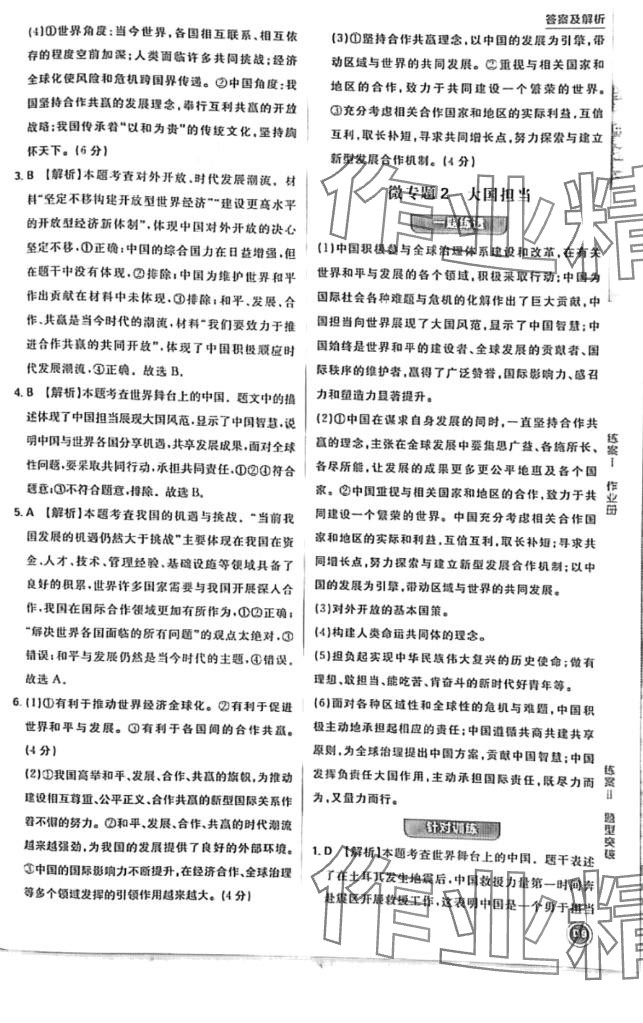 答案及解析
(4)①世界角度:当今世界,各国相互联系、相互依
存的程度空前加深;人类面临许多共同挑战;经济
全球化使风险和危机跨国界传递。②中国角度:我
国坚持合作共赢的发展理念,奉行互利共赢的开放
战略;我国传承着“以和为贵”的传统文化,坚持胸
怀天下。(6分)
3. B 【解析】本题考查对外开放、时代发展潮流。材
料“坚定不移构建开放型世界经济”“建设更高水平
的开放型经济新体制”,体现中国对外开放的决心
坚定不移,①正确;中国的综合国力在日益增强,但
在材料中未体现,②排除;中国为维护世界和平
作出贡献在材料中未体现,③排除;和平、发展、合
作、共赢是当今时代的潮流,材料“我们要致力于推
进合作共赢的共同开放”,体现了中国积极顺应时
代发展潮流,④正确。故选B。
4. B 【解析】本题考查世界舞台上的中国。题文中的描
述体现了中国担当展现大国风范,显示了中国智慧,说
明中国与世界各国分享机遇,共享发展成果,面对全球
性问题,要采取共同行动,承担共同责任,①②④符合
题意;③不符合题意,排除。故选B。
5. A 【解析】本题考查我国的机遇与挑战。“当前我
国发展的机遇大于挑战”主要体现在我国在资
金、人才、技术、管理经验、基础设施等领域具有了
良好的积累,世界许多国家需要与我国开展深入合
作,我国在国际合作领域更加有所作为,①②正确;
“解决世界各国面临的所有问题”的观点太绝对,③
错误;和平与发展仍然是当今时代的主题,④错误。
故选A。
6. (1)①有利于推动世界经济全球化。②有利于促进
世界和平与发展。③有利于各国间的合作共赢。
(4分)
(2)①我国高举和平、发展、合作、共赢的旗帜,为推动
建设相互尊重、公平正义、合作共赢的新型国际关系作
着不懈的努力。②和平、发展、合作、共赢的时代潮流
越来越强劲,为我国发展提供了良好的外部环境。
③中国的国际影响力不断提升,在经济合作、全球治理
等多个领域发挥的引领作用越来越大。(4分)
(3)①坚持合作共赢理念,以中国的发展为引擎,带
动区域与世界的共同发展。②重视与相关国家和
地区的合作,致力于共同建设一个繁荣的世界。
③充分考虑相关合作国家和地区的实际利益,互信
互利,取长补短,寻求共同增长点,努力探索与建立
新型发展合作机制。(4分)
微专题2 大国担当
一题练透
(1)中国积极参与全球治理体系建设和改革,在有关
世界和平与发展的各个领域,积极采取行动;中国为
国际社会各种难题与危机的化解作出了巨大贡献,中
国担当向世界展现了大国风范,显示了中国智慧;中
国始终是世界和平的建设者、全球发展的贡献者、国
际秩序的维护者,赢得了广泛赞誉,国际影响力、感召
力和塑造力显著提升。
(2)①中国在谋求自身发展的同时,一直坚持合作共
赢的理念,主张在全球发展中要集思广益、各施所长、
各尽所能,让发展的成果更多更公平地惠及各个国
家。②中国重视与相关国家和地区的合作,致力于共
同建设一个繁荣的世界。中国充分考虑相关合作国
家和地区的实际和利益,互信互利,取长补短;寻求共
同增长点,努力探索与建立新型发展合作机制;以中
国的发展为引擎,带动区域与世界的共同发展。
(3)对外开放的基本国策。
(4)构建人类命运共同体的理念。
(5)担负起实现中华民族伟大复兴的历史使命;做有
理想、敢担当、能吃苦、肯奋斗的新时代好青年等。
(6)面对各种区域性和全球性的危机与难题,中国积
极主动地承担起相应的责任;中国遵循共商共建共享
原则,为全球治理提出中国方案,贡献中国智慧;中国
发挥负责任大国作用,主动承担国际责任,既尽力而
为,又量力而行。
针对训练
1. D 【解析】本题考查世界舞台上的中国。题干表述
了在土耳其发生地震后,中国救援力量第一时间奔
赴震区开展救援工作,这表明中国是一个勇于担当
练案Ⅰ 作业册
练案Ⅱ 题型突破
作业精
作业精